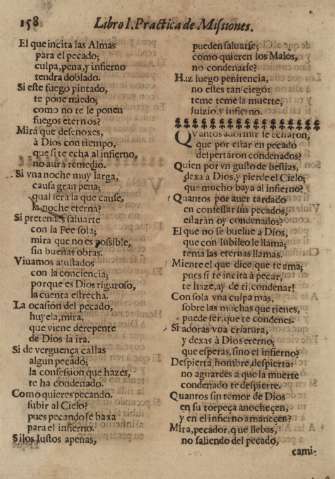 158 Libro I. Practica de Missiones.
El que incita las Almas
para el pecado,
culpa, pena, y infierno
tendra doblado.
Si este fuego pintado,
te pone miedo,
como no te le ponen
fuegos eternos?
Mira que des enojes,
à Dios con tiempo,
que si te echa al infierno,
no aurà remedio.
Si vna noche muy larga,
causa gran pena,
qual serà la que cause,
la noche eterna?
Si pretendes saluarte
con la Fee sola;
mira que no es possible,
sin buenas obras.
Viuamos
con la conciencia,
porque es Dios riguroso,
la cuenta estrecha.
La ocasion del pecado,
huyela, mira,
que viene de repente
de Dios la ira.
Si de verguença callas
algun pecado,
la confession que hazes,
te ha condenado.
Como quieres pecando
subir al Cielo?
pues pecando se baxa
para el infierno.
Si los Iustos apenas,
pueden saluarse;
como quieren los Malos,
no condenarse?
Haz luego penitencia,
no estes tan ciego:
teme teme la muerte,
Iuizio, y infierno.
Quantos à dormir se echaron,
que por estar en pecado
despertaron condenados?
Quien por vn gusto de bestias,
dexa à Dios, y pierde el Cielo,
que mucho baya al infierno?
Quantos por auer tardado
en confessar sus pecados,
estaràn oy condenados?
El que no se buelue à Dios,
que con Iubileo le llama;
tema las eternas llamas.
Miente el que dice que te ama;
pues si te incita à pecar,
te haze, ay de ti condenar!
Con sola vna culpa mas,
sobre las muchas que tienes,
puede ser, que te condenes.
Si adoras voa criatura,
y dexas à Dios eterno;
que esperas, sino el infierno?
Despierta hombre, despierta:
no aguardes à que la muerte
condenado te despierte.
Quantos sin temor de Dios
en su torpeça anochecen,
y en el infierno amanecen?
Mira, pecador, que llebas,
no saliendo del pecado,
cami-